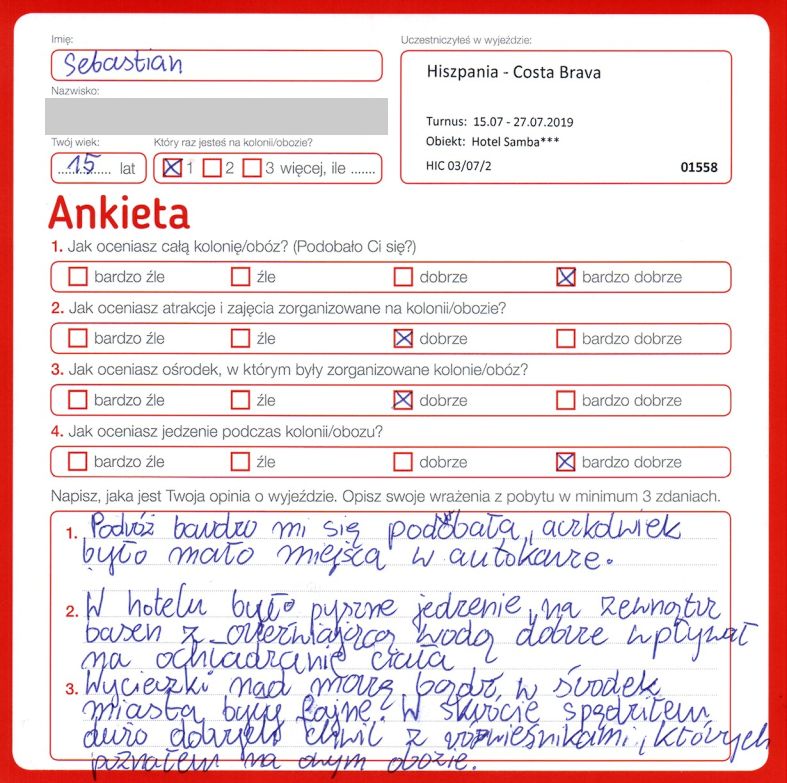 Imię:
Sebastian
Uczestniczyłeś w wyjeździe:
Hiszpania - Costa Brava
Turnus: 15.07 - 27.07.2019
Obiekt: Hotel Samba***
HIC 03/07/2
01558
Nazwisko:
Twój wiek:
15 lat
Który raz jesteś na kolonii/obozie?
1 2 3 więcej, ile .......
Ankieta
1. Jak oceniasz całą kolonię/obóz? (Podobało Ci się?)
bardzo źle źle dobrze bardzo dobrze
2. Jak oceniasz atrakcje i zajęcia zorganizowane na kolonii/obozie?
bardzo źle źle dobrze bardzo dobrze
3. Jak oceniasz ośrodek, w którym były zorganizowane kolonie/obóz?
bardzo źle źle dobrze bardzo dobrze
4. Jak oceniasz jedzenie podczas kolonii/obozu?
bardzo źle źle dobrze bardzo dobrze
Napisz, jaka jest Twoja opinia o wyjeździe. Opisz swoje wrażenia z pobytu w minimum 3 zdaniach.
1. Podróż bardzo mi się podobała, aczkolwiek
było mało miejsca w autokarze.
2. W hotelu było pyszne jedzenie, na zewnątrz
basen z wodą dobrze wpływał
na ochładzanie ciała
3. Wycieczki nad morze bądź w środek
miasta były fajne. W skrócie spędziłem
dużo dobrych chwil z rówieśnikami, których
poznałem na obozie.